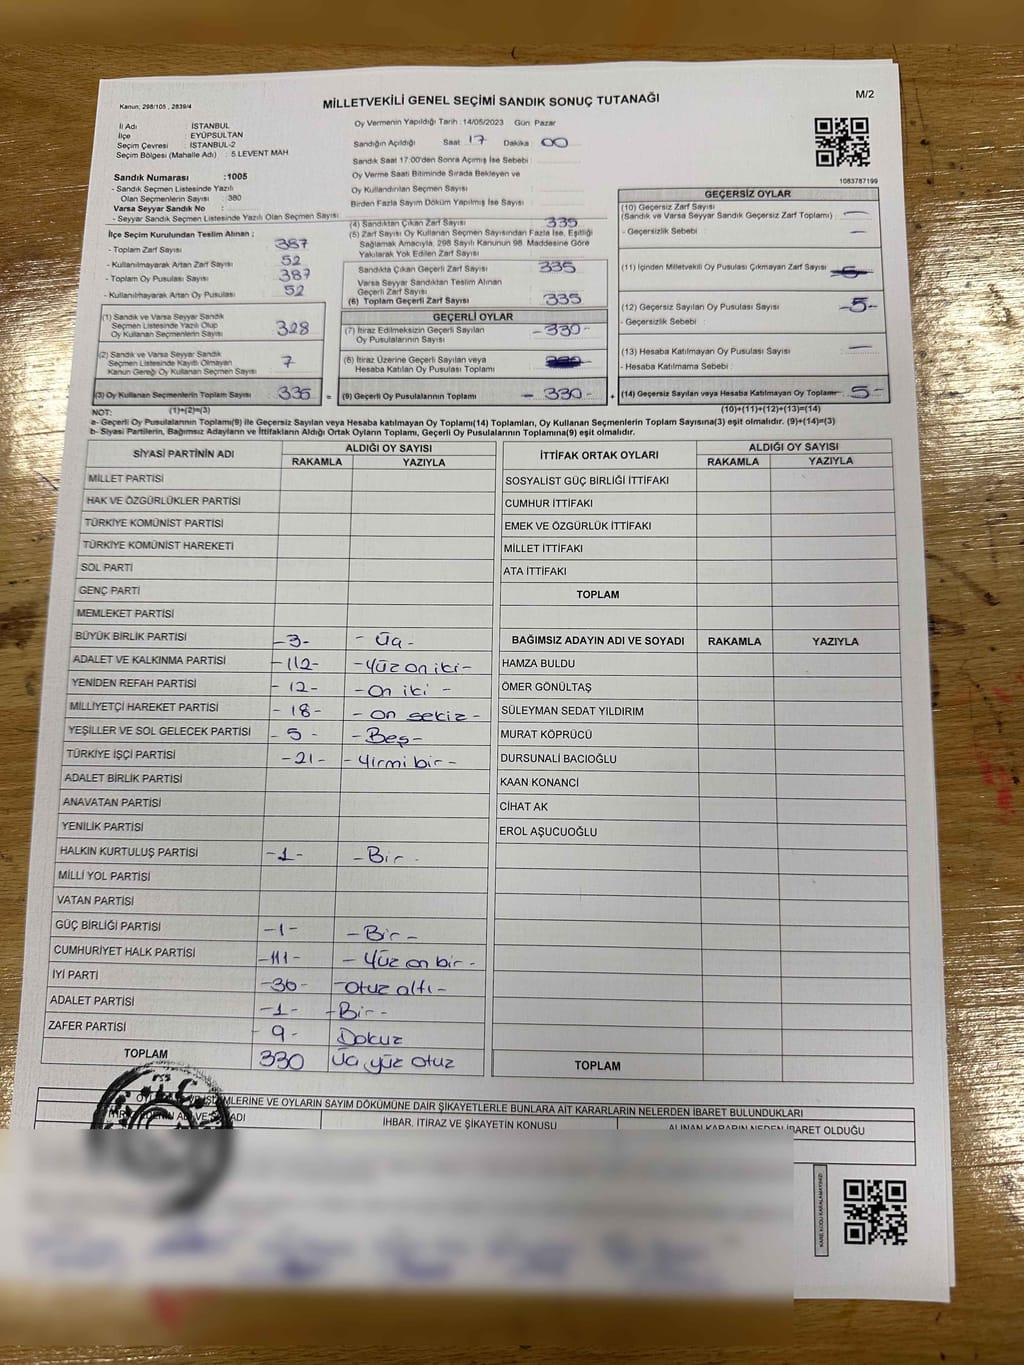 Kanun; 298/105 , 2839/4
MİLLETVEKİLİ GENEL SEÇİMİ SANDIK SONUÇ TUTANAĞI
M/2
İl Adı : İSTANBUL
İlçe : EYÜPSULTAN
Seçim Çevresi : İSTANBUL-2
Seçim Bölgesi (Mahalle Adı) : 5.LEVENT MAH
Sandık Numarası :1005
- Sandık Seçmen Listesinde Yazılı
Olan Seçmenlerin Sayısı : 380
Varsa Seyyar Sandık No :
- Seyyar Sandık Seçmen Listesinde Yazılı Olan Seçmen Sayısı
Oy Vermenin Yapıldığı Tarih : 14/05/2023 Gün: Pazar
Sandığın Açıldığı Saat : 17 Dakika : 00
Sandık Saat 17.00'den Sonra Açımış İse Sebebi :
Oy Verme Saati Bitiminde Sırada Bekleyen ve
Oy Kullandırılan Seçmen Sayısı :
Birden Fazla Sayım Döküm Yapılmış İse Sayısı :
1083787199
İlçe Seçim Kurulundan Teslim Alınan ;
- Toplam Zarf Sayısı : 387
- Kullanılmayarak Artan Zarf Sayısı : 52
- Toplam Oy Pusulası Sayısı : 387
- Kullanılmayarak Artan Oy Pusulası : 52
(1) Sandık ve Varsa Seyyar Sandık
Seçmen Listesinde Yazılı Olup
Oy Kullanan Seçmenlerin Sayısı 328
(2) Sandık ve Varsa Seyyar Sandık
Seçmen Listesinde Kayıtlı Olmayan
Kanun Gereği Oy Kullanan Seçmen Sayısı 7
(3) Oy Kullanan Seçmenlerin Toplam Sayısı 335 =
(4) Sandıktan Çıkan Zarf Sayısı 335
(5) Zarf Sayısı Oy Kullanan Seçmen Sayısından Fazla İse, Eşitliği
Sağlamak Amacıyla, 298 Sayılı Kanunun 98. Maddesine Göre
Yakılarak Yok Edilen Zarf Sayısı :
Sandıkta Çıkan Geçerli Zarf Sayısı 335
Varsa Seyyar Sandıktan Teslim Alınan
Geçerli Zarf Sayısı
(6) Toplam Geçerli Zarf Sayısı 335
GEÇERLİ OYLAR
(7) İtiraz Edilmeksizin Geçerli Sayılan
Oy Pusulalarının Sayısı : -330-
(8) İtiraz Üzerine Geçerli Sayılan veya
Hesaba Katılan Oy Pusulası Toplamı :
(9) Geçerli Oy Pusulalarının Toplamı - 330 - +
GEÇERSİZ OYLAR
(10) Geçersiz Zarf Sayısı
(Sandık ve Varsa Seyyar Sandık Geçersiz Zarf Toplamı) : —
- Geçersizlik Sebebi : —
(11) İçinden Milletvekili Oy Pusulası Çıkmayan Zarf Sayısı
(12) Geçersiz Sayılan Oy Pusulası Sayısı : -5-
- Geçersizlik Sebebi :
(13) Hesaba Katılmayan Oy Pusulası Sayısı : —
- Hesaba Katılmama Sebebi :
(14) Geçersiz Sayılan veya Hesaba Katılmayan Oy Toplamı 5 -
NOT: (1)+(2)=(3) (10)+(11)+(12)+(13)=(14)
a- Geçerli Oy Pusulalarının Toplamı(9) ile Geçersiz Sayılan veya Hesaba katılmayan Oy Toplamı(14) Toplamları, Oy Kullanan Seçmenlerin Toplam Sayısına(3) eşit olmalıdır. (9)+(14)=(3)
b- Siyasi Partilerin, Bağımsız Adayların ve İttifakların Aldığı Ortak Oyların Toplamı, Geçerli Oy Pusulalarının Toplamına(9) eşit olmalıdır.
SİYASİ PARTİNİN ADI ALDIĞI OY SAYISI
RAKAMLA YAZIYLA
MİLLET PARTİSİ
HAK VE ÖZGÜRLÜKLER PARTİSİ
TÜRKİYE KOMÜNİST PARTİSİ
TÜRKİYE KOMÜNİST HAREKETİ
SOL PARTİ
GENÇ PARTİ
MEMLEKET PARTİSİ
BÜYÜK BİRLİK PARTİSİ -3- - Üç -
ADALET VE KALKINMA PARTİSİ -112- -Yüz on iki-
YENİDEN REFAH PARTİSİ - 12- -On iki -
MİLLİYETÇİ HAREKET PARTİSİ - 18- - On sekiz -
YEŞİLLER VE SOL GELECEK PARTİSİ - 5 - -Beş-
TÜRKİYE İŞÇİ PARTİSİ -21- - Yirmi bir -
ADALET BİRLİK PARTİSİ
ANAVATAN PARTİSİ
YENİLİK PARTİSİ
HALKIN KURTULUŞ PARTİSİ -1- -Bir -
MİLLİ YOL PARTİSİ
VATAN PARTİSİ
GÜÇ BİRLİĞİ PARTİSİ -1- -Bir -
CUMHURİYET HALK PARTİSİ -111- - Yüz on bir -
İYİ PARTİ -36- -Otuz altı -
ADALET PARTİSİ -1- -Bir-
ZAFER PARTİSİ - 9- Dokuz
TOPLAM 330 Üç yüz otuz
İTTİFAK ORTAK OYLARI ALDIĞI OY SAYISI
RAKAMLA YAZIYLA
SOSYALİST GÜÇ BİRLİĞİ İTTİFAKI
CUMHUR İTTİFAKI
EMEK VE ÖZGÜRLÜK İTTİFAKI
MİLLET İTTİFAKI
ATA İTTİFAKI
TOPLAM
BAĞIMSIZ ADAYIN ADI VE SOYADI RAKAMLA YAZIYLA
HAMZA BULDU
ÖMER GÖNÜLTAŞ
SÜLEYMAN SEDAT YILDIRIM
MURAT KÖPRÜCÜ
DURSUNALİ BACIOĞLU
KAAN KONANCİ
CİHAT AK
EROL AŞUCUOĞLU
TOPLAM
İŞLEMLERİNE VE OYLARIN SAYIM DÖKÜMÜNE DAİR ŞİKAYETLERLE BUNLARA AİT KARARLARIN NELERDEN İBARET BULUNDUKLARI
ADI VE SOYADI İHBAR, İTİRAZ VE ŞİKAYETİN KONUSU ALINAN KARARIN NEDEN İBARET OLDUĞU
KARE KODU KARALAMAYINIZ!